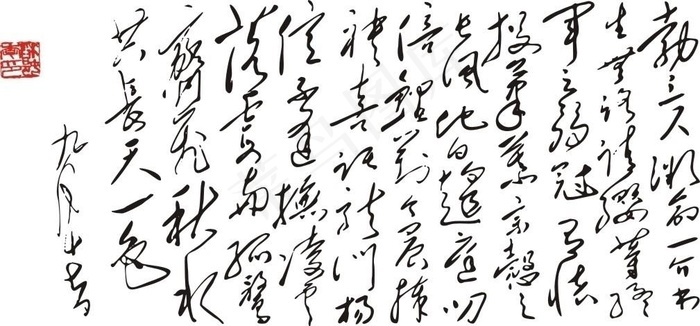 勃三尺微命一介书
生無路请缨等终
军之弱冠有怀
投筆慕宗悫之
长风他日趋庭叨
陪鲤对今晨捧
袂喜托龙门杨
意不逢抚凌云
落霞与孤鹜
齐飞秋水
共長天一色
九月